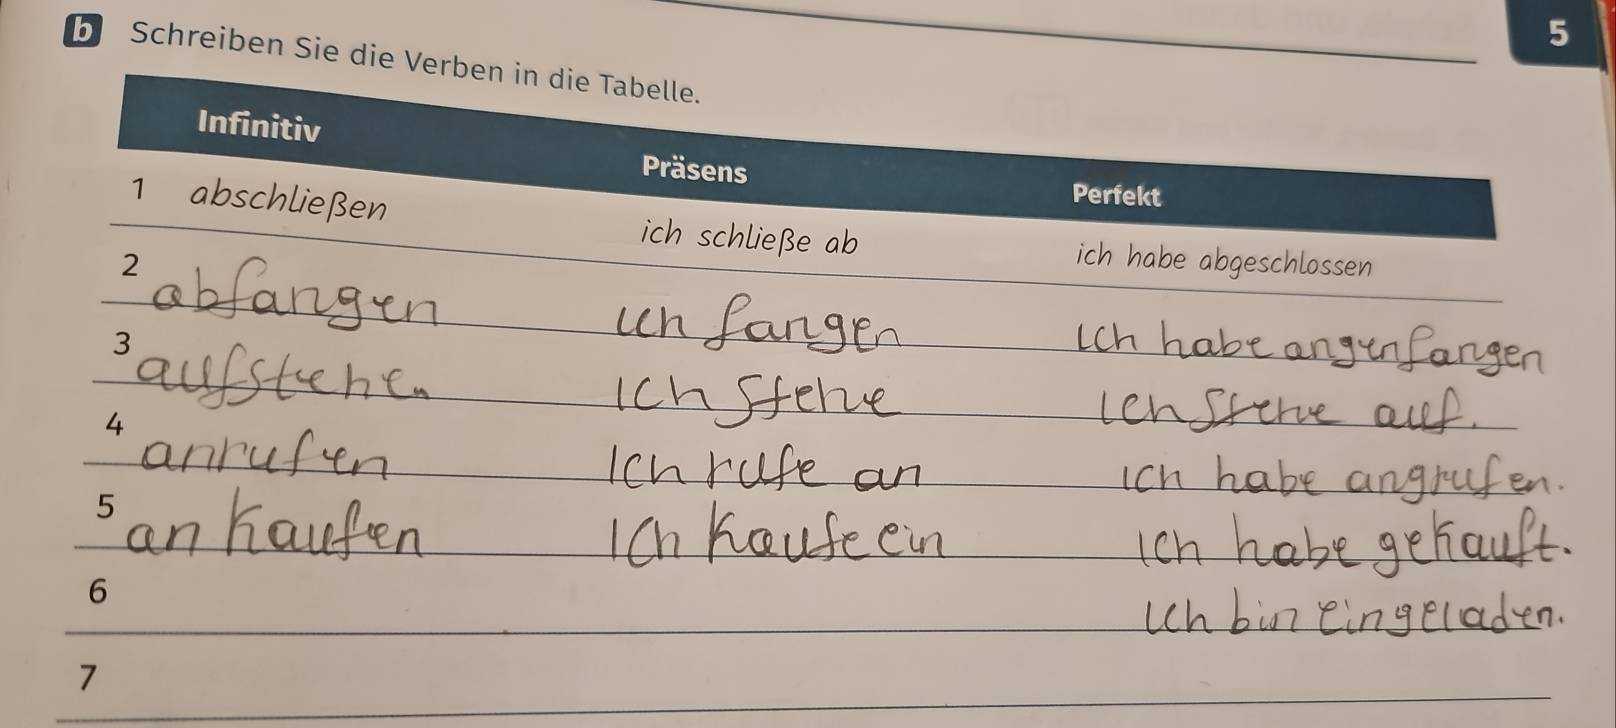 b Schreiben Sie die Verben in die Tabelle.
5
Infinitiv Präsens Perfekt
1 abschließen ich schließe ab ich habe abgeschlossen
2 abfangen ich fangen ich habe angenfangen
3 aufstehen ich stehe ich stehe auf.
4 anrufen ich rufe an ich habe angrufen.
5 an kaufen ich kaufe ein ich habe gekauft.
6 ich bin eingeladen.
7